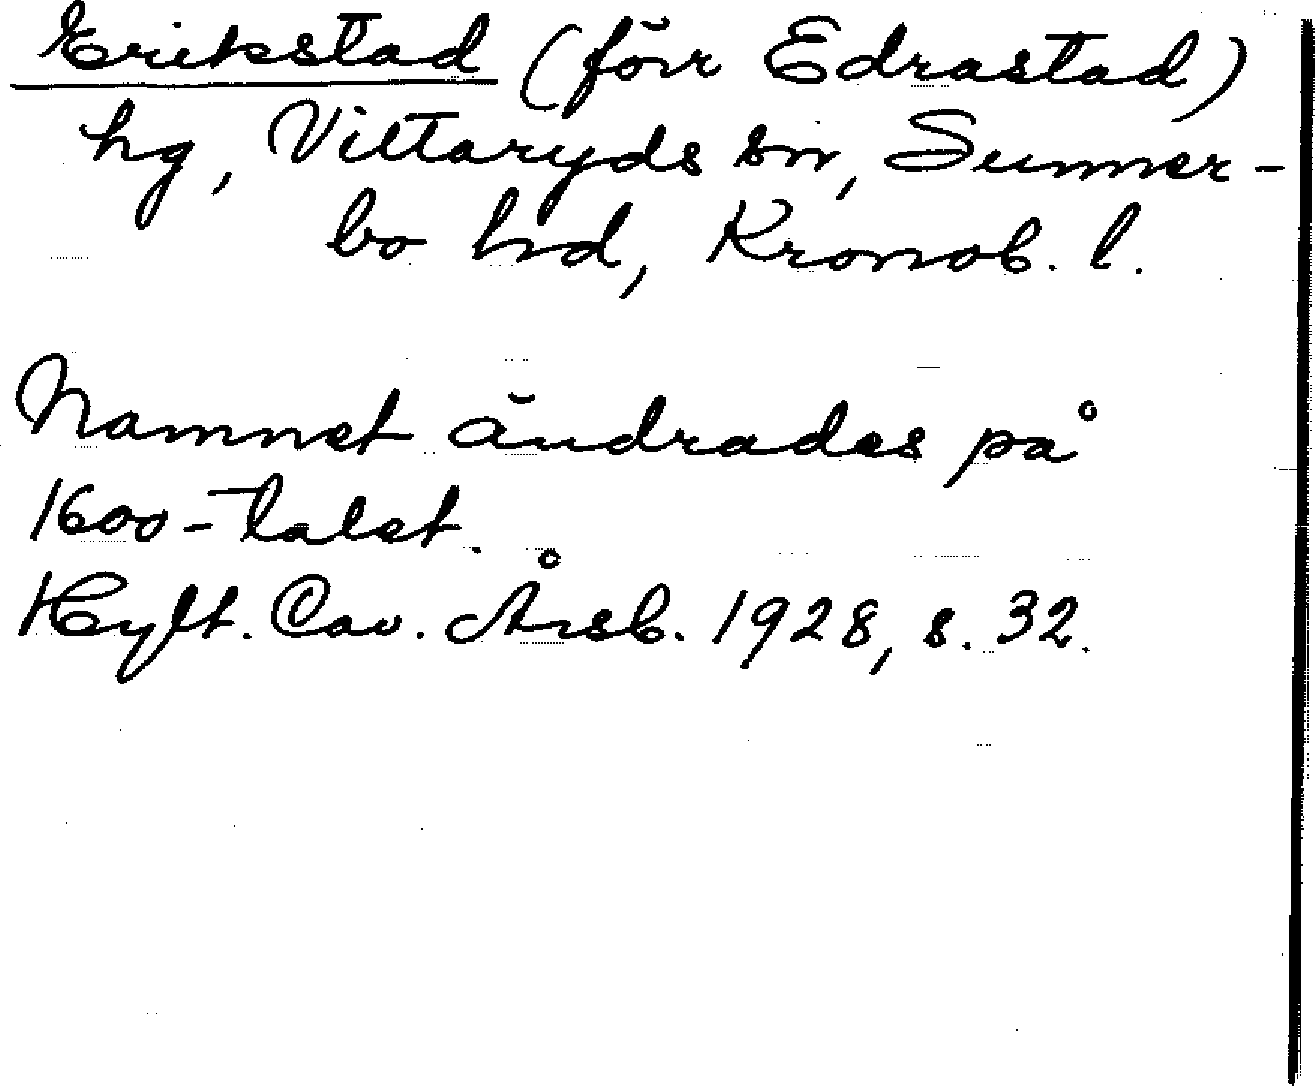 Erikstad (förr Edrastad)
hg, Vittaryds sn, Sunner-
bo hd, Kronob. l.
Namnet ändrades på
1600-talet.
Hylt. Cav. Årsb. 1928, s. 32.